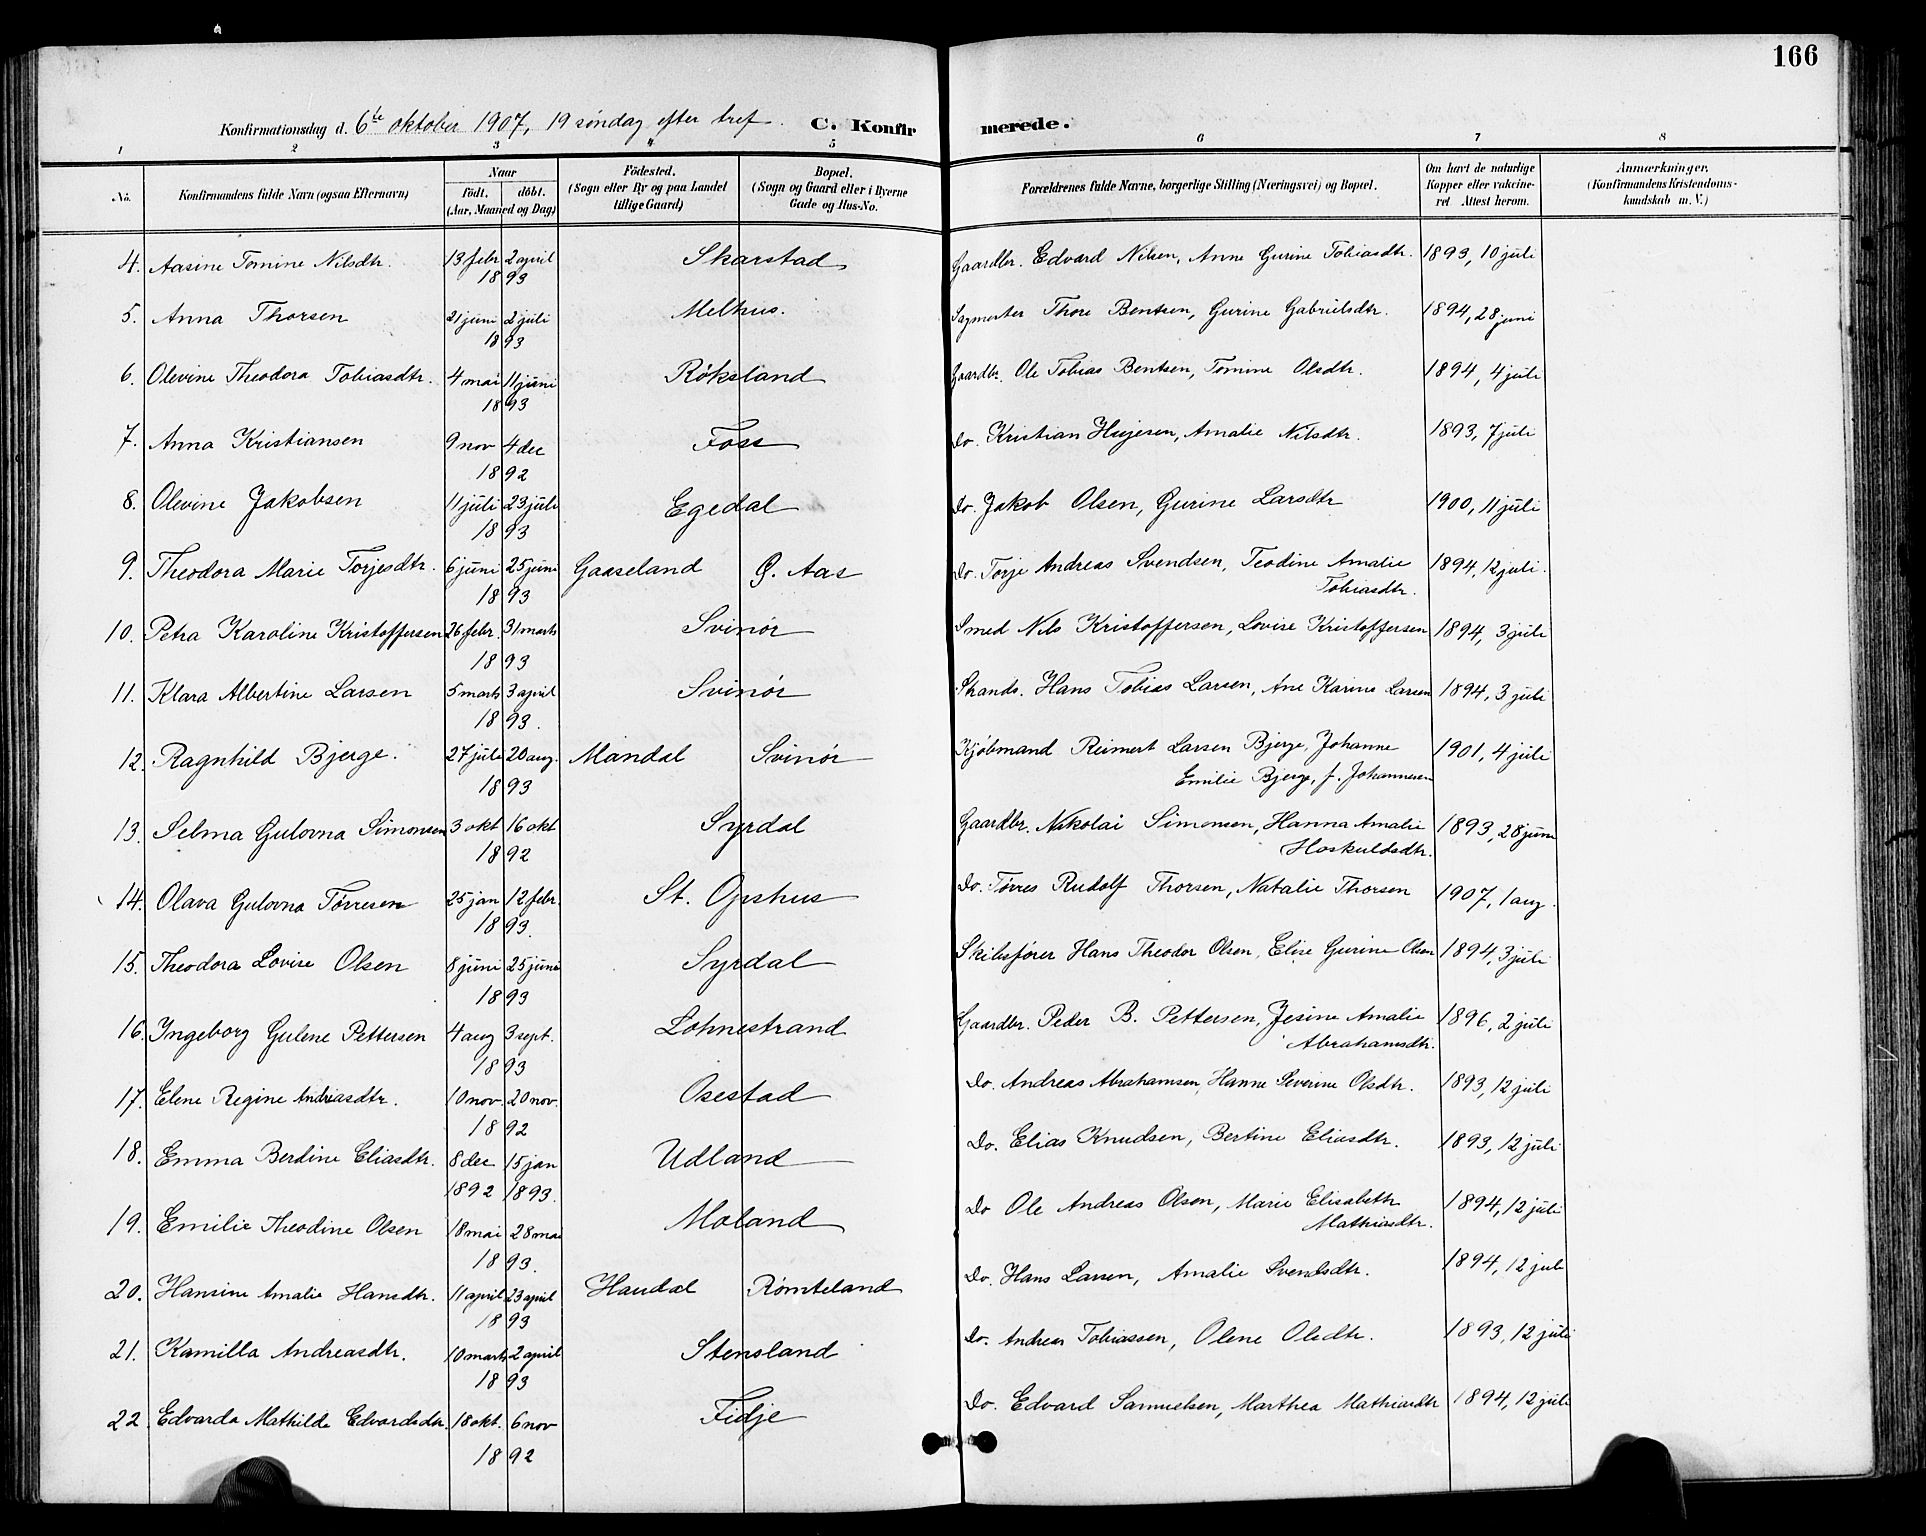 166
Konfirmationsdag d. 6te oktober 1907, 19 søndag efter tref. C. Konfirmerede.
1 2 3 4 5 6 7 8
No. Konfirmandens fulde Navn (ogsaa Efternavn) Naar født. døbt. (Aar, Maaned og Dag) Fødested. (Sogn eller By og paa Landet tillige Gaard) Bopæl. (Sogn og Gaard eller i Byerne Gade og Hus-No. Forældrenes fulde Navne, borgerlige Stilling (Næringsvei) og Bopæl. Om havt de naturlige Kopper eller vakcineret. Attest herom. Anmærkninger. (Konfirmandens Kristendomskundskab m. V.)
4. Aasine Tomine Nilsdtr. 13 febr 2 april 1893 Skarstad Gaardbr. Edvard Nilsen, Anne Gurine Tobiasdtr. 1893, 10 juli
5. Anna Thorsen 21 juni 2 juli 1893 Melhus. Sagmester Thore Bentsen, Gurine Gabrielsdtr. 1894, 28 juni
6. Olevine Theodora Tobiasdtr. 4 mai 11 juni 1893 Røksland Gaardbr. Ole Tobias Bentsen, Tomine Olsdtr. 1894, 4 juli
7. Anna Kristiansen 9 nov 4 dec 1892 Foss Do. Kristian Hujesen, Amalie Nilsdtr. 1893, 7 juli
8. Olevine Jakobsen 11 juli 23 juli 1893 Egedal Do. Jakob Olsen, Gurine Larsdtr 1900, 11 juli
9. Theodora Marie Torjesdtr. 6 juni 25 juni 1893 Gaaseland G. Aas Do. Torje Andreas Svendsen, Teodine Amalie Tobiasdtr. 1894, 12 juli.
10. Petra Karoline Kristoffersen 26 febr. 31 marts 1893 Svinør Smed Nils Kristoffersen, Lovise Kristoffersen 1894, 3 juli
11. Klara Albertine Larsen 5 marts 3 april 1893. Svinør Strands. Hans Tobias Larsen, Ane Karine Larsen 1894, 3 juli
12. Ragnhild Bjerge. 27 juli 20 aug. 1893 Mandal Svinør Kjøbmand Reimert Larsen Bjerge, Johanne Emilie Bjerge, f. Johannesen 1901, 4 juli
13. Selma Gulovna Simonsen 3 okt 16 okt 1892 Syrdal Gaardbr. Nikolai Simonsen, Hanna Amalie Hoskuldsdtr. 1893, 28 juni
14. Olava Gulovna Tørresen 25 jan 12 febr. 1893. St. Opshus Do. Tørres Rudolf Thorsen, Natalie Thorsen 1907, 1 aug.
15. Theodora Lovise Olsen 8 juni 25 juni 1893 Syrdal Skibsfører Hans Theodor Olsen, Elise Gurine Olsen 1894, 3 juli
16. Ingeborg Gulene Pettersen 4 aug 3 sept. 1893 Lohnestrand Gaardbr. Peder B. Pettersen, Jesine Amalie Abrahamsdtr. 1896, 2 juli
17. Elene Regine Andreasdtr. 10 nov. 20 nov. 1892 Osestad Do. Andreas Abrahamsen, Hanne Severine Olsdtr. 1893, 12 juli
18. Emma Berdine Eliasdtr. 8 dec 1892 15 jan 1893. Udland Do. Elias Knudsen, Bertine Eliasdtr. 1893, 12 juli
19. Emilie Theodine Olsen 18 mai 28 mai 1893. Moland Do Ole Andreas Olsen, Marie Elisabeth Mathiasdtr. 1894, 12 juli
20. Hansine Amalie Hansdtr. 11 april 23 april 1893 Haudal Rømteland Do. Hans Larsen, Amalie Svendsdtr. 1894, 12 juli
21. Kamilla Andreasdtr. 10 marts 2 april 1893 Stensland Do. Andreas Tobiassen, Olene Olsdtr. 1893, 12 juli
22. Edvarda Mathilde Edvardsdtr. 18 okt. 6 nov 1892 Fidje Do. Edvard Samuelsen, Marthea Mathiasdtr 1894, 12 juli